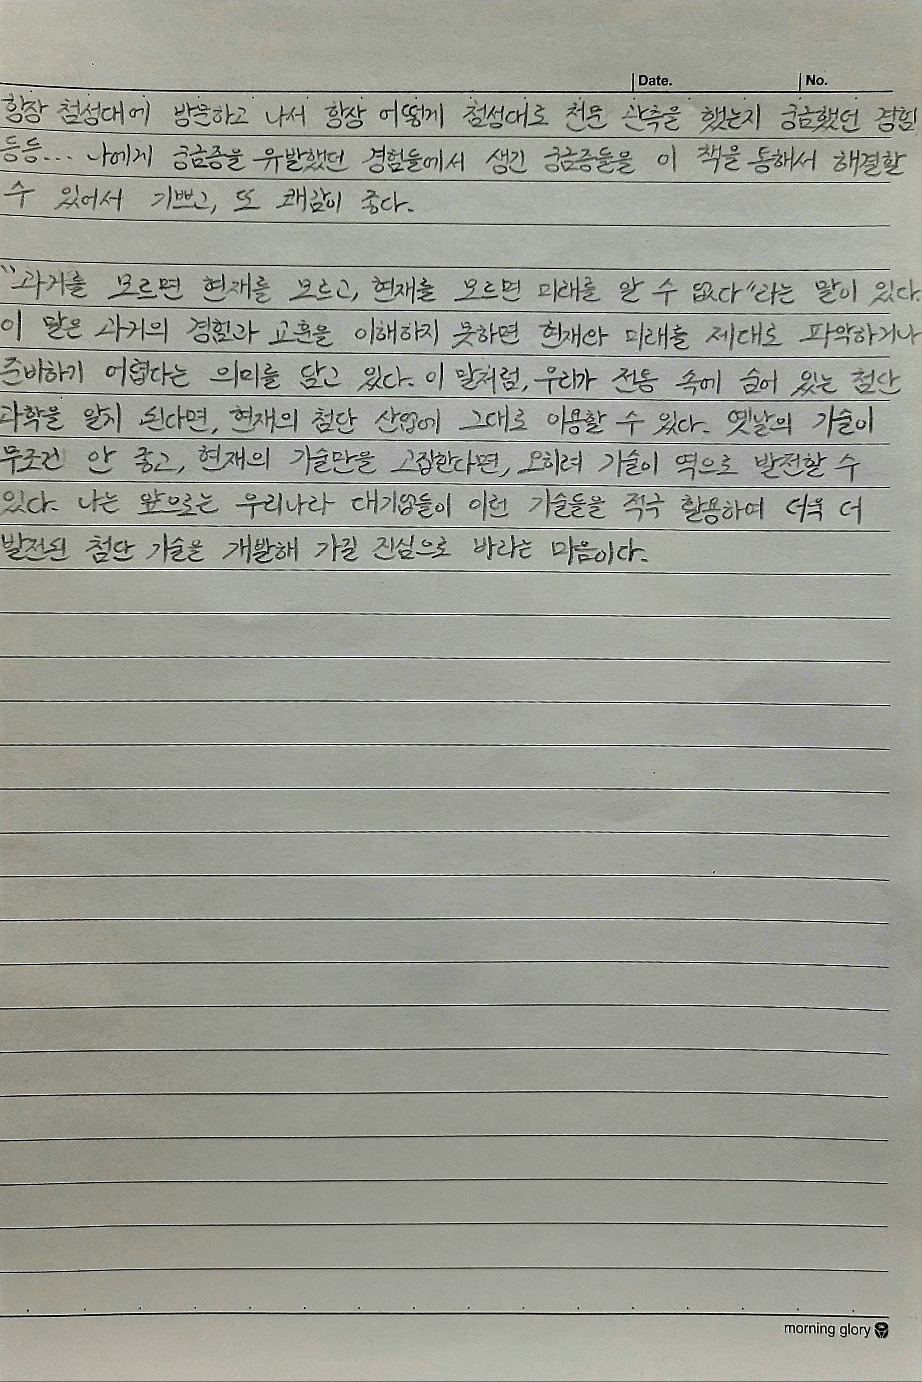 Date. No.
항장 첨성대에 방문하고 나서 항장 어떻게 첨성대로 천문 관측을 했는지 궁금했던 경험
등등... 나에게 궁금증을 유발했던 경험들에서 생긴 궁금증들을 이 책을 통해서 해결할
수 있어서 기쁘고, 또 쾌감이 좋다.
"과거를 모르면 현재를 모르고, 현재를 모르면 미래를 알 수 없다"라는 말이 있다.
이 말은 과거의 경험과 교훈을 이해하지 못하면 현재와 미래를 제대로 파악하거나
준비하기 어렵다는 의미를 담고 있다. 이 말처럼, 우리가 전통 속에 숨어 있는 첨단
과학을 알게 된다면, 현재의 첨단 산업에 그대로 이용할 수 있다. 옛날의 기술이
무조건 안 좋고, 현재의 기술만을 고집한다면, 오히려 기술이 역으로 발전할 수
있다. 나는 앞으로는 우리나라 대기업들이 이런 기술들을 적극 활용하여 더욱 더
발전된 첨단 기술을 개발해 가길 진심으로 바라는 마음이다.
morning glory